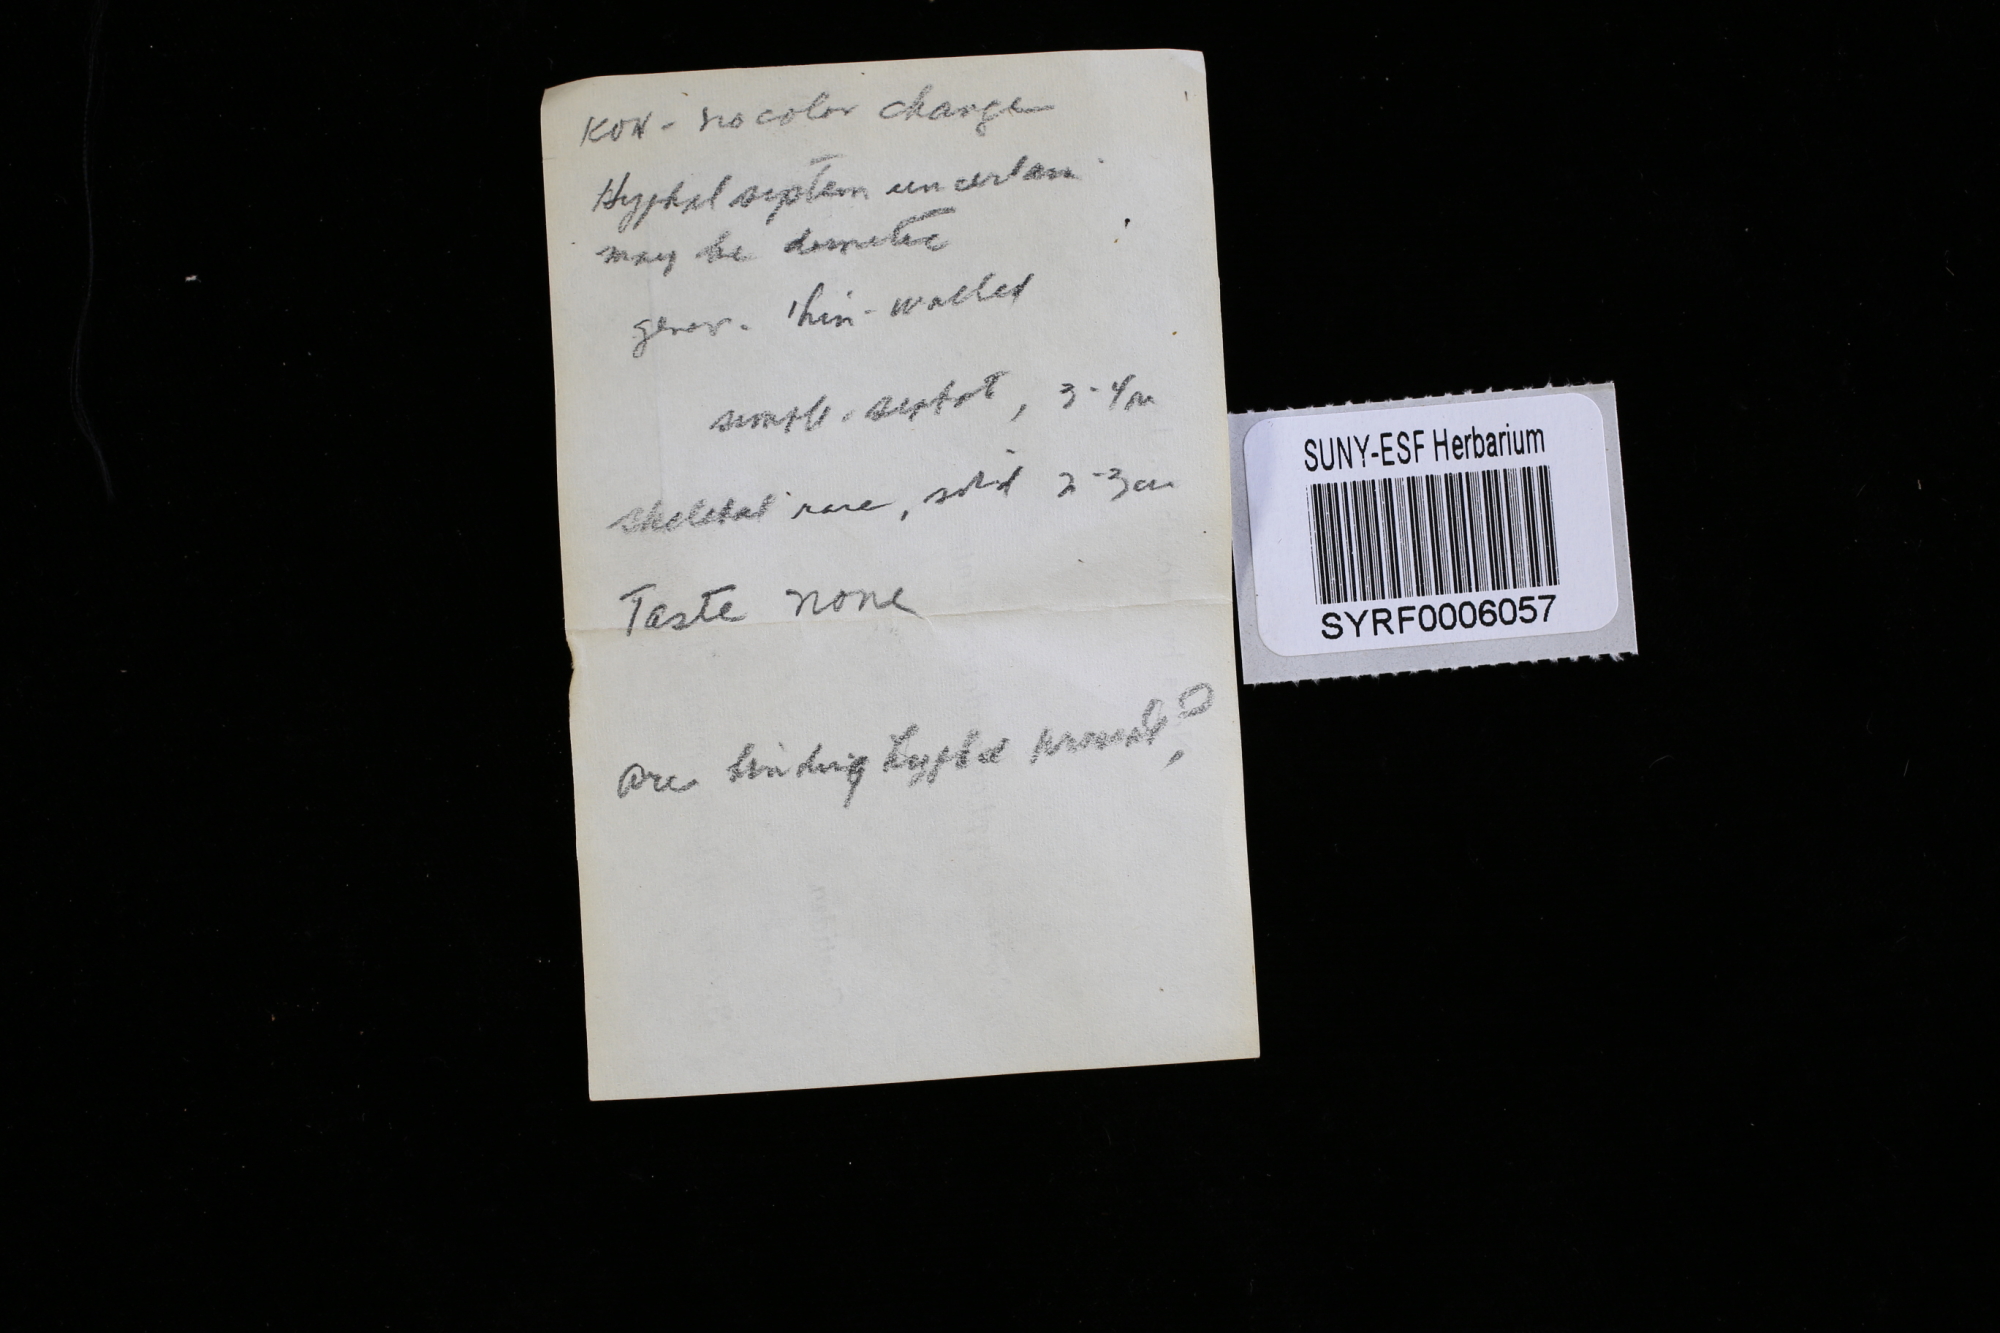 KOH - no color change
Hyphal system uncertain
may be dimitic
gener. thin-walled
simple-septat, 3-4µ
skeletal rare, solid 2-3µ
Taste none
Are binding hyphae present?
SUNY-ESF Herbarium
SYRF0006057